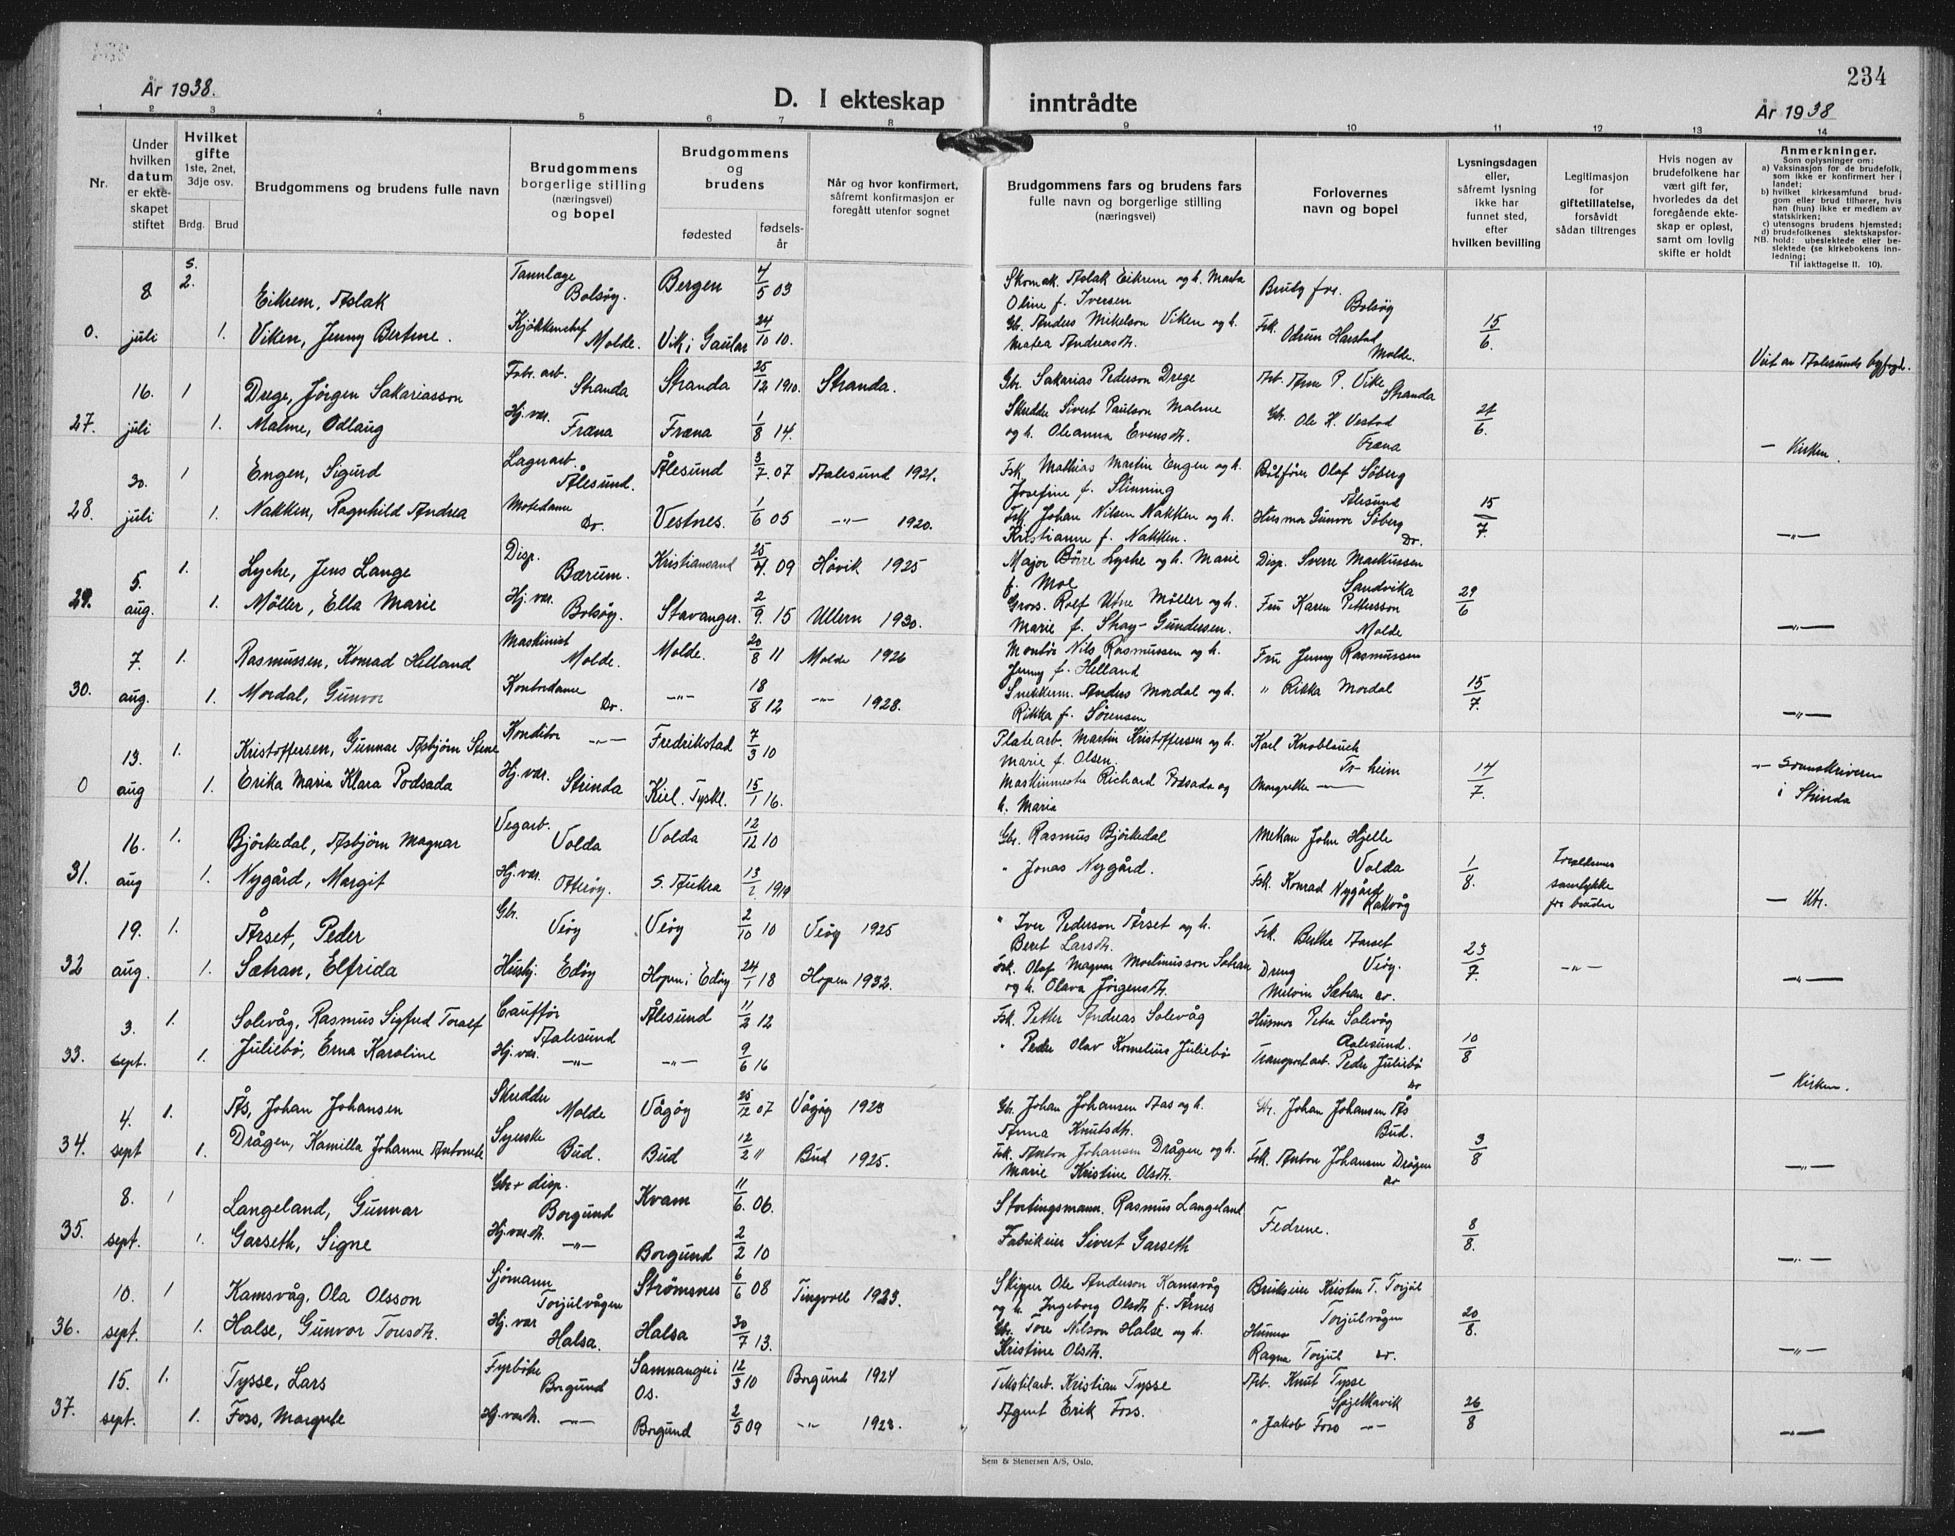 234
År 1938.
D. I ekteskap inntrådte
År 1938
1 2 3 4 5 6 7 8 9 10 11 12 13 14
Nr.
Under hvilken datum er ekteskapet stiftet
Hvilket gifte 1ste, 2net, 3dje osv.
Brdg. Brud
Brudgommens og brudens fulle navn
Brudgommens borgerlige stilling (næringsvei) og bopel
Brudgommens og brudens
fødested
fødselsår
Når og hvor konfirmert, såfremt konfirmasjon er foregått utenfor sognet
Brudgommens fars og brudens fars fulle navn og borgerlige stilling (næringsvei)
Forlovernes navn og bopel
Lysningsdagen eller, såfremt lysning ikke har funnet sted, efter hvilken bevilling
Legitimasjon for giftetillatelse, forsåvidt sådan tiltrenges
Hvis nogen av brudefolkene har vært gift før, hvorledes da det foregående ekteskap er opløst, samt om lovlig skifte er holdt
Anmerkninger.
Som oplysninger om:
a) Vaksinasjon for de brudefolk, som ikke er konfirmert her i landet;
b) hvilket kirkesamfund brudgom eller brud tilhører, hvis han (hun) ikke er medlem av statskirken;
c) utensogns brudens hjemsted;
d) brudefolkenes slektskapsforhold: ubeslektede eller beslektede (se kirkebokens innledning;
NB.
Til iakttagelse II. 10).
8 s. 2. Eikrem, Aslak Tannlæge Bolsøy. Bergen 4/5 03 Skomak. Aslak Eikrem og h. Marta Oline f. Iversen Bolsøy
0. juli 1. Viken, Jenny Bertine. Kjøkkenchef Molde. Vik i Gaular 24/10 10. Gb. Anders Mikelson Viken og h. Matea Andreasdt. Fsk. Odrun Harstad Molde. 15/6.
Viet av Aalesunds byfogd.
16. 1 Drege, Jørgen Sakariasson Fabr. arb. Stranda Stranda 25/12 1910. Stranda. Gb. Sakarias Pederson Drege Arb. Arne P. Vike Stranda
27. juli 1. Malme, Odlaug Hj. vær. Fræna Fræna 1/8 14. Skredder Sivert Paulson Malme og h. Oleanna Evensdt. Gb. Ole K. Vestad Fræna 21/6.
— Kirken.
30. 1 Engen, Sigurd Lagerarb. Ålesund. Ålesund 3/7 07 Aalesund 1921. Fsk. Mathias Martin Engen og h. Josefine f. Slinning Båtfører Olaf Søberg Ålesund
28. juli 1. Nakken, Ragnhild Andrea Motedame Do. Vestnes. 1/6 05 —"— 1920. Fsk. Johan Nilsen Nakken og h. Kristianne f. Nakken. Husmor Gunvor Søberg Do. 15/7.
—"—
5. 1. Lyche, Jens Lange Disp. Bærum. Kristiansand 25/4. 09 Høvik 1925 Major Børre Lyche og h. Marie f. Moe Disp. Sverre Markussen Sandvika
29. aug. 1. Möller, Ella Marie Hj. vær. Bolsøy. Stavanger. 2/9. 15 Ullern 1930. Gros. Rolf Utne Møller og h. Marie f. Skay-Gundersen. Fru Karen Pettersson Molde 29/6
—"—
7. 1. Rasmussen, Konrad Helland Maskinist Molde. Molde. 20/8 11 Molde 1926 Montør Nils Rasmussen og h. Jenny f. Helland Fru Jenny Rasmussen
30. aug. 1. Mordal, Gunvor Kontordame Do. —"— 18/8 12 —"— 1928. Snekkerm. Anders Mordal og h. Rikka f. Sørensen " Rikka Mordal 15/7.
—"—
13. 1. Kristoffersen, Gunnar Asbjørn Stene Konditor —"— Fredrikstad 7/3 10 Platearb. Martin Kristoffersen og h. Marie f. Olsen. Karl Knoblauch Tr-heim
0 aug 1. Erika Maria Klara Podsada Hj. vær. Strinda Kiel. Tyskl. 15/1 16. Maskinmester Richard Podsada og h. Maria Margrethe —"— 14/7.
—"— Sorenskriveren i Strinda
16. 1. Bjørkedal, Asbjørn Magnar Vegarb. Volda Volda 12/12 10 Gb. Rasmus Bjørkedal Mekan John Hjelle Volda
31. aug 1. Nygård, Margit Hj. vær. Otterøy. S. Aukra 13/2. 1919 " Jonas Nygård. Fsk. Konrad Nygård Rakvåg 1/8. Foreldrenes samtykke for bruden
— Ubr.
19. 1. Årset, Peder Gb. Veøy Veøy 2/10 10 Veøy 1925 " Iver Pederson Årset og h. Beret Larsdt. Fsk. Berthe Aarset Veøy.
32 aug. 1. Sætran, Elfrida Hushj. Edøy Hopen i Edøy 24/1 18 Hopen 1932. Fsk. Olaf Magnar Mortinusson Sætran og h. Olava Jörgensdt. Dreng Melvin Sætran do. 23/7. —"—
—"—
3. 1. Solevåg, Rasmus Sigfred Toralf Cauffør Aalesund Ålesund 11/2 12 Fsk. Petter Andreas Solevåg Husmor Petra Solevåg Aalesund.
33. sept. 1. Juliebø, Erna Karoline Hj. vær. —"— —"— 9/6 16 " Peder Olav Kornelius Juliebø Transportarb. Peder Juliebø do 10/8
— Kirken.
4. 1. Ås, Johan Johansen Skredder Molde Vågøy 25/2 07 Vågøy 1923 Gb. Johan Johansen Aas og h. Anna Knutsdt. Gb. Johan Johansen Ås Bud.
34. sept 1. Drågen, Kamilla Johanne Antonette Syerske Bud. Bud 12/2 11 Bud 1925. Fsk. Anton Johansen Drågen og h. Marie Kristine Olsdt. Fsk. Anton Johansen Drågen do 3/8
—"—
8. 1 Langeland, Gunnar Gbr + disp. Borgund Kvam 11/6. 06. Stortingsmann. Rasmus Langeland Fedrene.
35. sept. 1. Garseth, Signe Hj. værdt. —"— Borgund 2/2 10 Fabrikeier Sivert Garseth 8/8.
—"—
10. 1 Kamsvåg, Ola Olsson Sjømann Torjulvågen Strømsnes 6/6 08 Tingvoll 1923. Skipper Ole Anderson Kamsvåg og h. Ingeborg Olsdt. f. Årnes Brukseier Kristen T. Torjul Torjulvågen
36. sept. 1. Halse, Gunvor Toresdt. Hj. vær Halsa. Halsa 30/7 13. Gb. Tore Nilson Halse og h. Kristine Olsdt. Husmor Ragna Torjul do. 20/8.
—"—
15. 1. Tysse, Lars Fyrbøter Borgund Samnanger i Os. 12/3 10 Borgund 1924 Tekstilarb. Kristian Tysse Arb. Knut Tysse Spjelkavik
37. sept. 1. Foss, Margrete Hj. værdt. —"— Borgund 2/5 09 —"— 1923. Agent Erik Foss. " Jakob Foss —"— 26/8
—"—
Sem & Stenersen A/S, Oslo.